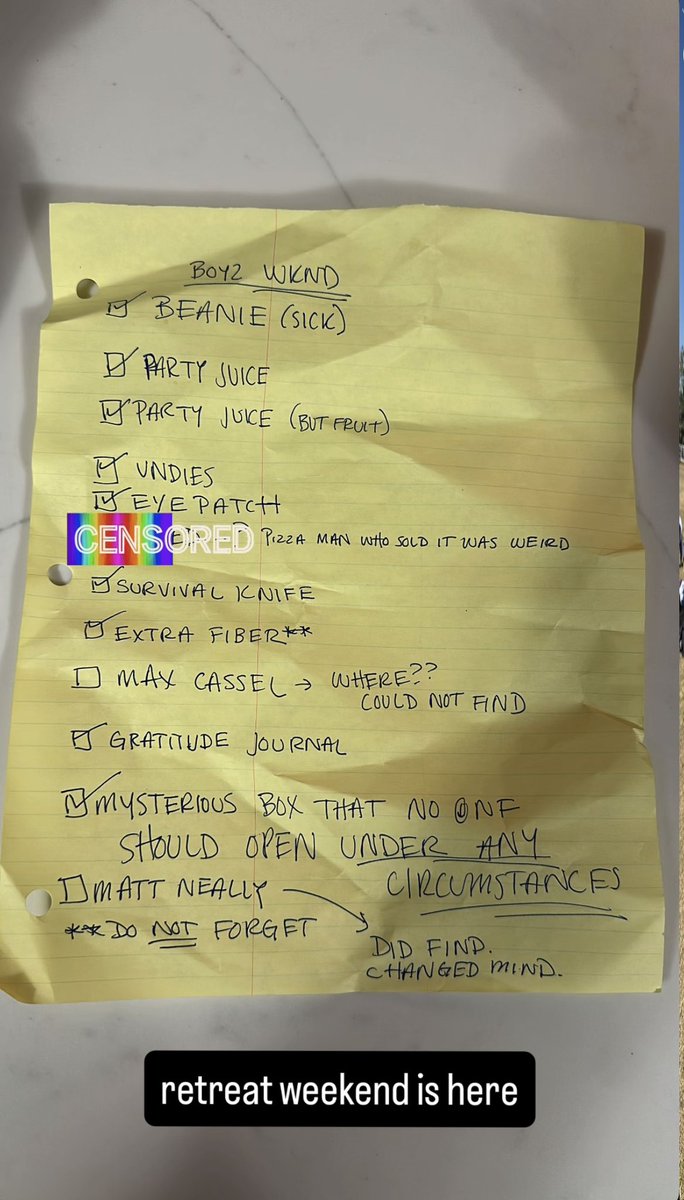 BOYZ WKND
BEANIE (SICK)
PARTY JUICE
PARTY JUICE (BUT FRUIT)
UNDIES
EYE PATCH
CENSORED PIZZA MAN WHO SOLD IT WAS WEIRD
SURVIVAL KNIFE
EXTRA FIBER**
MAX CASSEL → WHERE??
COULD NOT FIND
GRATITUDE JOURNAL
MYSTERIOUS BOX THAT NO ONE
SHOULD OPEN UNDER ANY
CIRCUMSTANCES
MATT NEALLY
**DO NOT FORGET
DID FIND.
CHANGED MIND.
retreat weekend is here